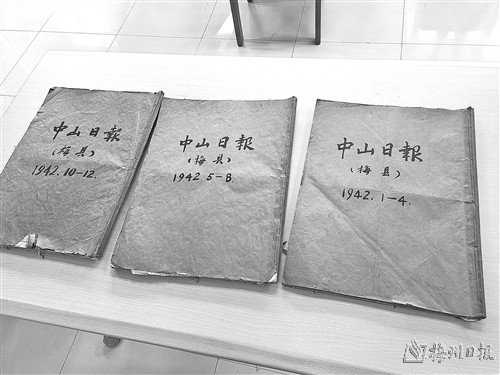 中山日報
(梅县)
1942.10-12.
中山日報
(梅县)
1942.5-8
中山日報
(梅县)
1942.1-4.
梅州日报